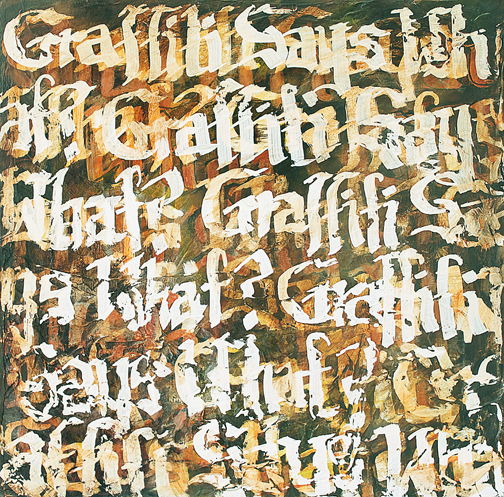 Graffiti Says Wh
at? Graffiti Say
What? Graffiti Sa
ys What? Graffiti
Says What? Gr
affiti Says Wha